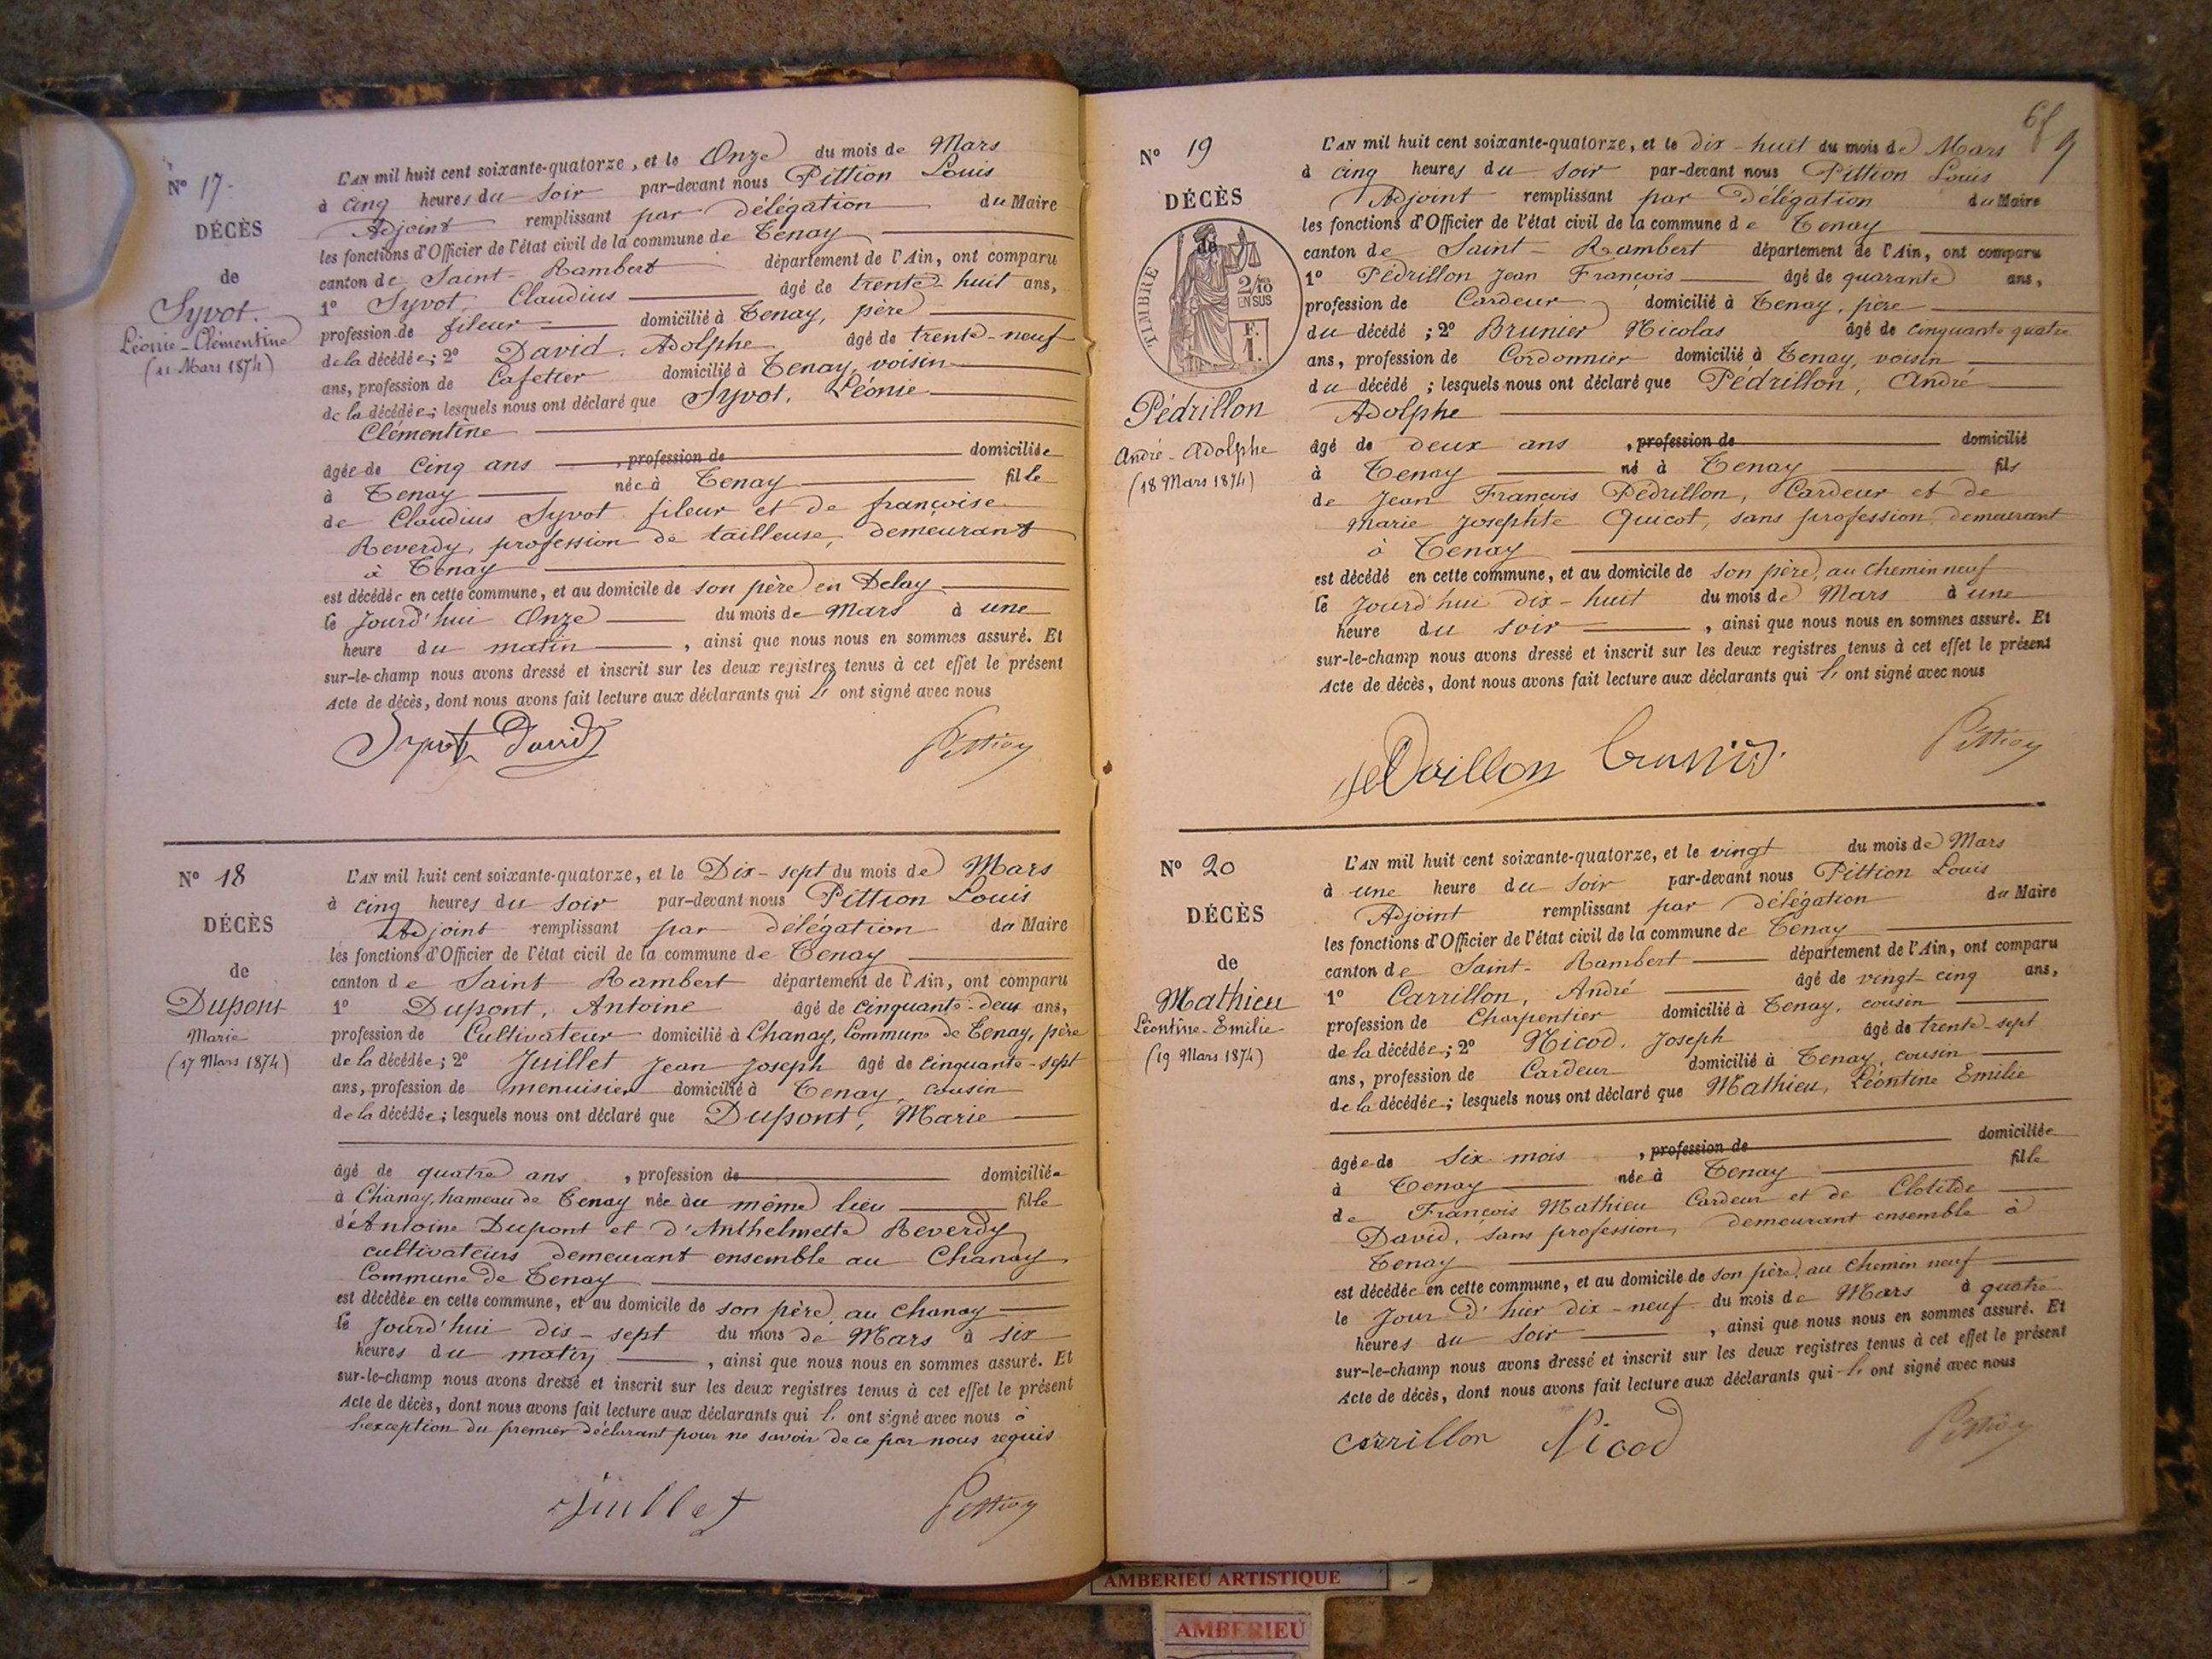 N° 17.
DÉCÈS
de
Syvot.
Léonie-Clémentine
(11 Mars 1874)
L'AN mil huit cent soixante-quatorze, et le Onze du mois de Mars
à cinq heures du soir par-devant nous Pittion Louis
Adjoint remplissant par délégation du Maire
les fonctions d'Officier de l'état civil de la commune de Tenay
canton de Saint-Rambert département de l'Ain, ont comparu
1° Syvot, Claudius âgé de trente-huit ans,
profession de fileur domicilié à Tenay, père
de la décédée; 2° David, Adolphe âgé de trente-neuf
ans, profession de Cafetier domicilié à Tenay, voisin
de la décédée; lesquels nous ont déclaré que Syvot, Léonie
Clémentine
âgée de cinq ans, profession de domiciliée
à Tenay née à Tenay fille
de Claudius Syvot fileur et de françoise
Reverdy, profession de tailleuse, demeurant
à Tenay
est décédée en cette commune, et au domicile de son père en Delay
le Jourd'hui Onze du mois de Mars à une
heure du matin, ainsi que nous nous en sommes assuré. Et
sur-le-champ nous avons dressé et inscrit sur les deux registres tenus à cet effet le présent
Acte de décès, dont nous avons fait lecture aux déclarants qui l' ont signé avec nous
Syvot David Pittion
N° 18
DÉCÈS
de
Dupont
Marie
(17 Mars 1874)
L'AN mil huit cent soixante-quatorze, et le Dix-sept du mois de Mars
à cinq heures du soir par-devant nous Pittion Louis
Adjoint remplissant par délégation du Maire
les fonctions d'Officier de l'état civil de la commune de Tenay
canton de Saint Rambert département de l'Ain, ont comparu
1° Dupont, Antoine âgé de cinquante-deux ans,
profession de Cultivateur domicilié à Chanay, Commune de Tenay, père
de la décédée; 2° Juillet Jean Joseph âgé de cinquante-sept
ans, profession de menuisier domicilié à Tenay, cousin
de la décédée; lesquels nous ont déclaré que Dupont, Marie
âgé de quatre ans, profession de domiciliée
à Chanay, hameau de Tenay née au même lieu fille
d'Antoine Dupont et d'Anthelmette Reverdy
cultivateurs demeurant ensemble au Chanay
Commune de Tenay
est décédée en cette commune, et au domicile de son père, au Chanay
le Jourd'hui dis-sept du mois de Mars à six
heures du matin, ainsi que nous nous en sommes assuré. Et
sur-le-champ nous avons dressé et inscrit sur les deux registres tenus à cet effet le présent
Acte de décès, dont nous avons fait lecture aux déclarants qui l' ont signé avec nous à
l'exception du premier déclarant pour ne savoir de ce par nous requis
Juillet Pittion
N° 19
DÉCÈS
de
TIMBRE
2/10
EN SUS
F.
1.
Pédrillon
André-Adolphe
(18 Mars 1874)
L'AN mil huit cent soixante-quatorze, et le dix-huit du mois de Mars
à cinq heures du soir par-devant nous Pittion Louis
Adjoint remplissant par délégation du Maire
les fonctions d'Officier de l'état civil de la commune de Tenay
canton de Saint-Rambert département de l'Ain, ont comparu
1° Pédrillon Jean François âgé de quarante ans,
profession de Cardeur domicilié à Tenay, père
du décédé; 2° Brunier Nicolas âgé de cinquante quatre
ans, profession de Cordonnier domicilié à Tenay, voisin
du décédé; lesquels nous ont déclaré que Pédrillon, André
Adolphe
âgé de deux ans, profession de domicilié
à Tenay né à Tenay fils
de Jean François Pédrillon, Cardeur et de
Marie Josephte Quicot, sans profession demeurant
à Tenay
est décédé en cette commune, et au domicile de son père, au Chemin neuf
le Jourd'hui dix-huit du mois de Mars à une
heure du soir, ainsi que nous nous en sommes assuré. Et
sur-le-champ nous avons dressé et inscrit sur les deux registres tenus à cet effet le présent
Acte de décès, dont nous avons fait lecture aux déclarants qui l' ont signé avec nous
Pittion
N° 20
DÉCÈS
de
Mathieu
Léontine-Emilie
(19 Mars 1874)
L'AN mil huit cent soixante-quatorze, et le vingt du mois de Mars
à une heure du soir par-devant nous Pittion Louis
Adjoint remplissant par délégation du Maire
les fonctions d'Officier de l'état civil de la commune de Tenay
canton de Saint-Rambert département de l'Ain, ont comparu
1° Carrillon, André âgé de vingt-cinq ans,
profession de Charpentier domicilié à Tenay, cousin
de la décédée; 2° Nicod, Joseph âgé de trente-sept
ans, profession de Cardeur domicilié à Tenay, cousin
de la décédée; lesquels nous ont déclaré que Mathieu, Léontine Emilie
âgée de six mois, profession de domiciliée
à Tenay née à Tenay fille
de François Mathieu Cardeur et de Clotilde
David, sans profession, demeurant ensemble à
Tenay
est décédée en cette commune, et au domicile de son père, au Chemin neuf
le Jour d'hier dix-neuf du mois de Mars à quatre
heures du soir, ainsi que nous nous en sommes assuré. Et
sur-le-champ nous avons dressé et inscrit sur les deux registres tenus à cet effet le présent
Acte de décès, dont nous avons fait lecture aux déclarants qui l' ont signé avec nous
Carrillon Nicod Pittion
AMBERIEU ARTISTIQUE
AMBERIEU